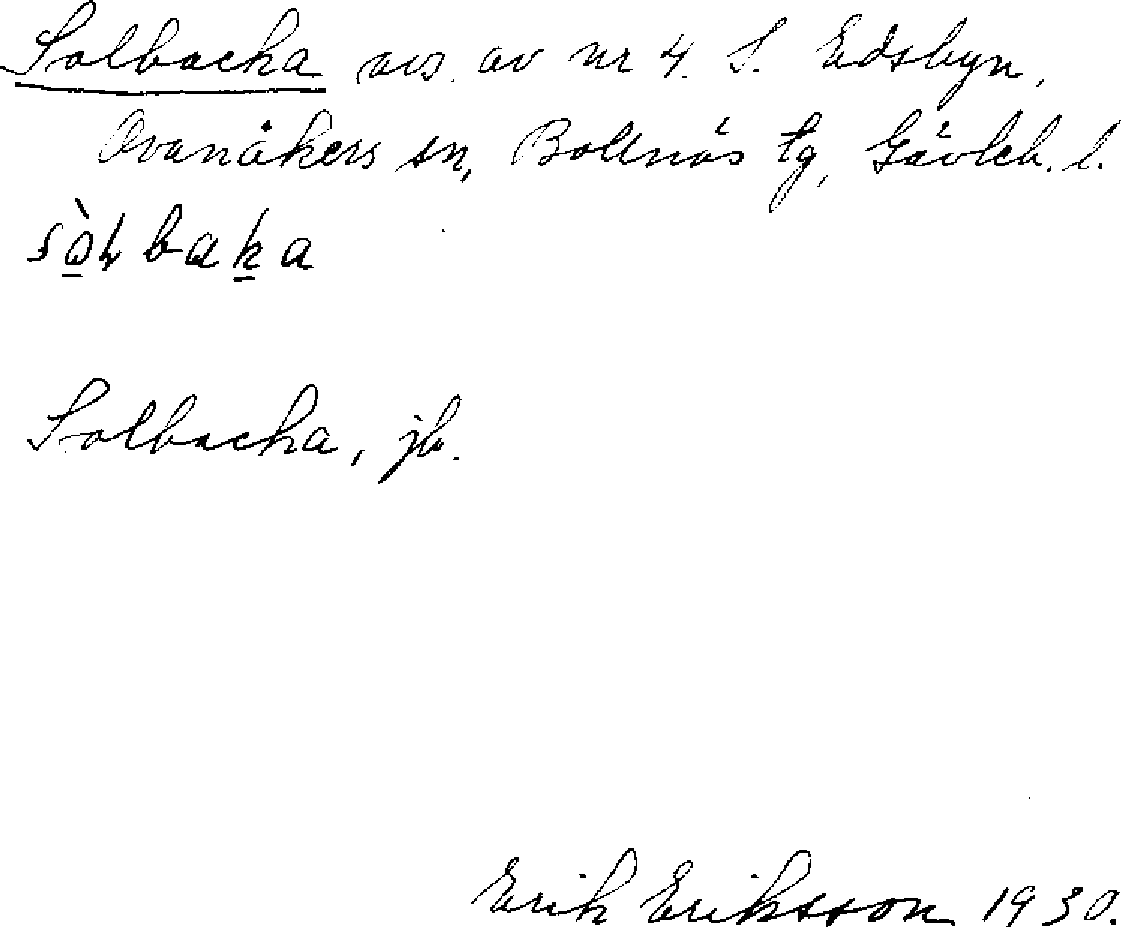 Solbacka avs. av nr 4. S. Edsbyn,
Ovanåkers sn, Bollnäs tg, Gävleb. l.
Solbacka, jb.
Erik Eriksson 1930.